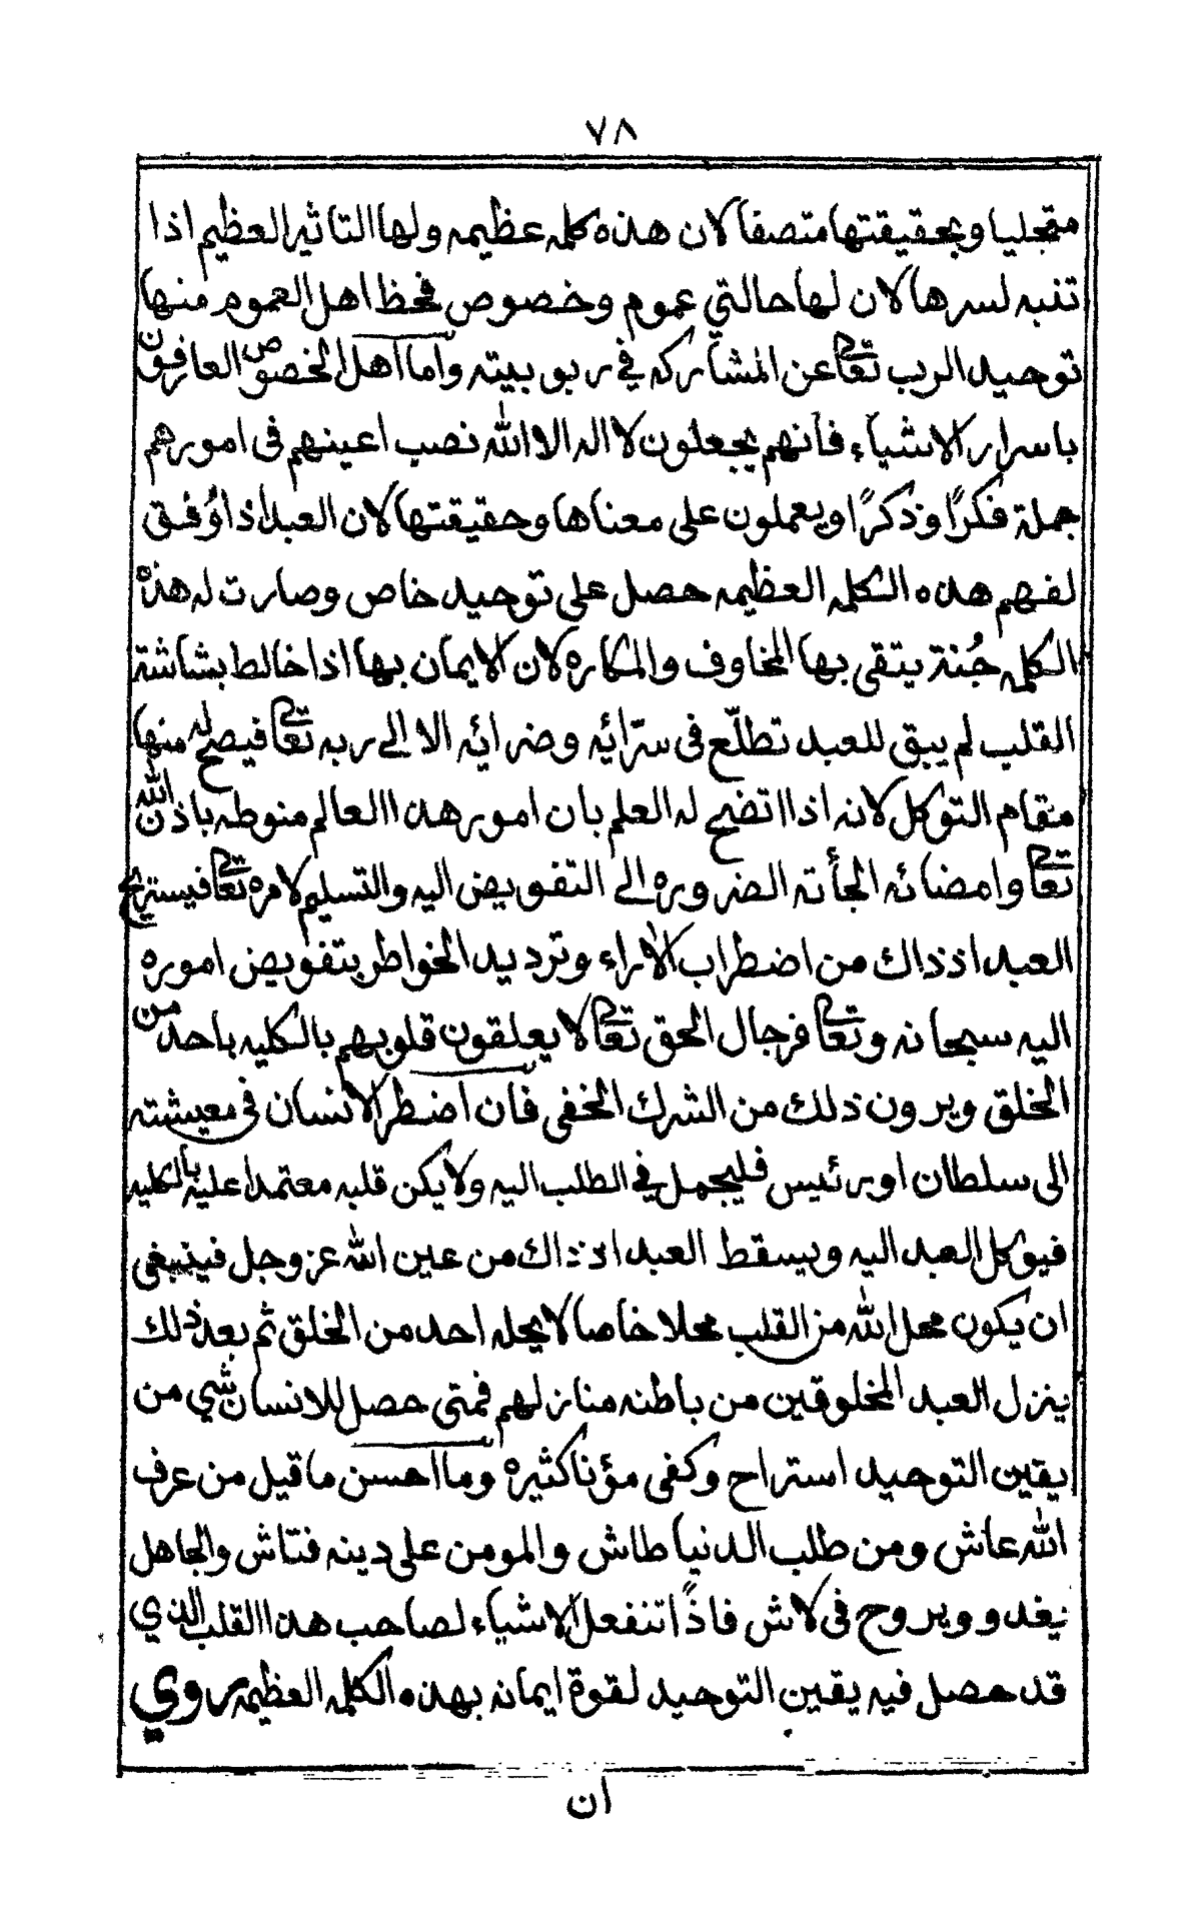 ٧٨
متجليا وبحقيقتها متصفا لان هذه كلمه عظيمه ولها التاثير العظيم اذا
تنبه لسرها لان لها حالتي عموم وخصوص فحظ اهل العموم منها
توحيد الرب تعالى عن المشاركه في ربوبيته واما اهل الخصوص العارفون
باسرار الاشياء فانهم يجعلون لا اله الا الله نصب اعينهم فى امورهم
جملة فكرًا وذكرًا ويعملون على معناها وحقيقتها لان العبد اذا وُفق
لفهم هذه الكلمه العظيمه حصل على توحيد خاص وصارت له هذه
الكلمه جُنة يتقى بها المخاوف والمكاره لان الايمان بها اذا خالط بشاشة
القلب لم يبق للعبد تطلّع فى سرّائه وضرائه الا الى ربه تعالى فيصح له منها
مقام التوكل لانه اذا اتضح له العلم بان امور هذا العالم منوطه باذن الله
تعالى وامضائه الجأته الضروره الى التفويض اليه والتسليم لامره تعالى فيستريح
العبد اذ ذاك من اضطراب الاراء وترديد الخواطر بتفويض اموره
اليه سبحانه وتعالى فرجال الحق تعالى لا يعلقون قلوبهم بالكليه باحد من
الخلق ويرون ذلك من الشرك الخفي فان اضطر الانسان فى معيشته
الى سلطان او رئيس فليجمل في الطلب اليه ولا يكن قلبه معتمدا عليه بالكليه
فيوكل العبد اليه ويسقط العبد اذ ذاك من عين الله عز وجل فينبغى
ان يكون محل الله من القلب محلا خاصا لا يحله احد من الخلق ثم بعد ذلك
ينزل العبد المخلوقين من باطنه منازلهم فمتى حصل للانسان شي من
يقين التوحيد استراح وكفى مؤنا كثيره وما احسن ما قيل من عرف
الله عاش ومن طلب الدنيا طاش والمومن على دينه فتاش والجاهل
يغدو ويروح فى لاش فاذًا تنفعل الاشياء لصاحب هذا القلب الذي
قد حصل فيه يقين التوحيد لقوة ايمانه بهذه الكلمه العظيمه روي
ان